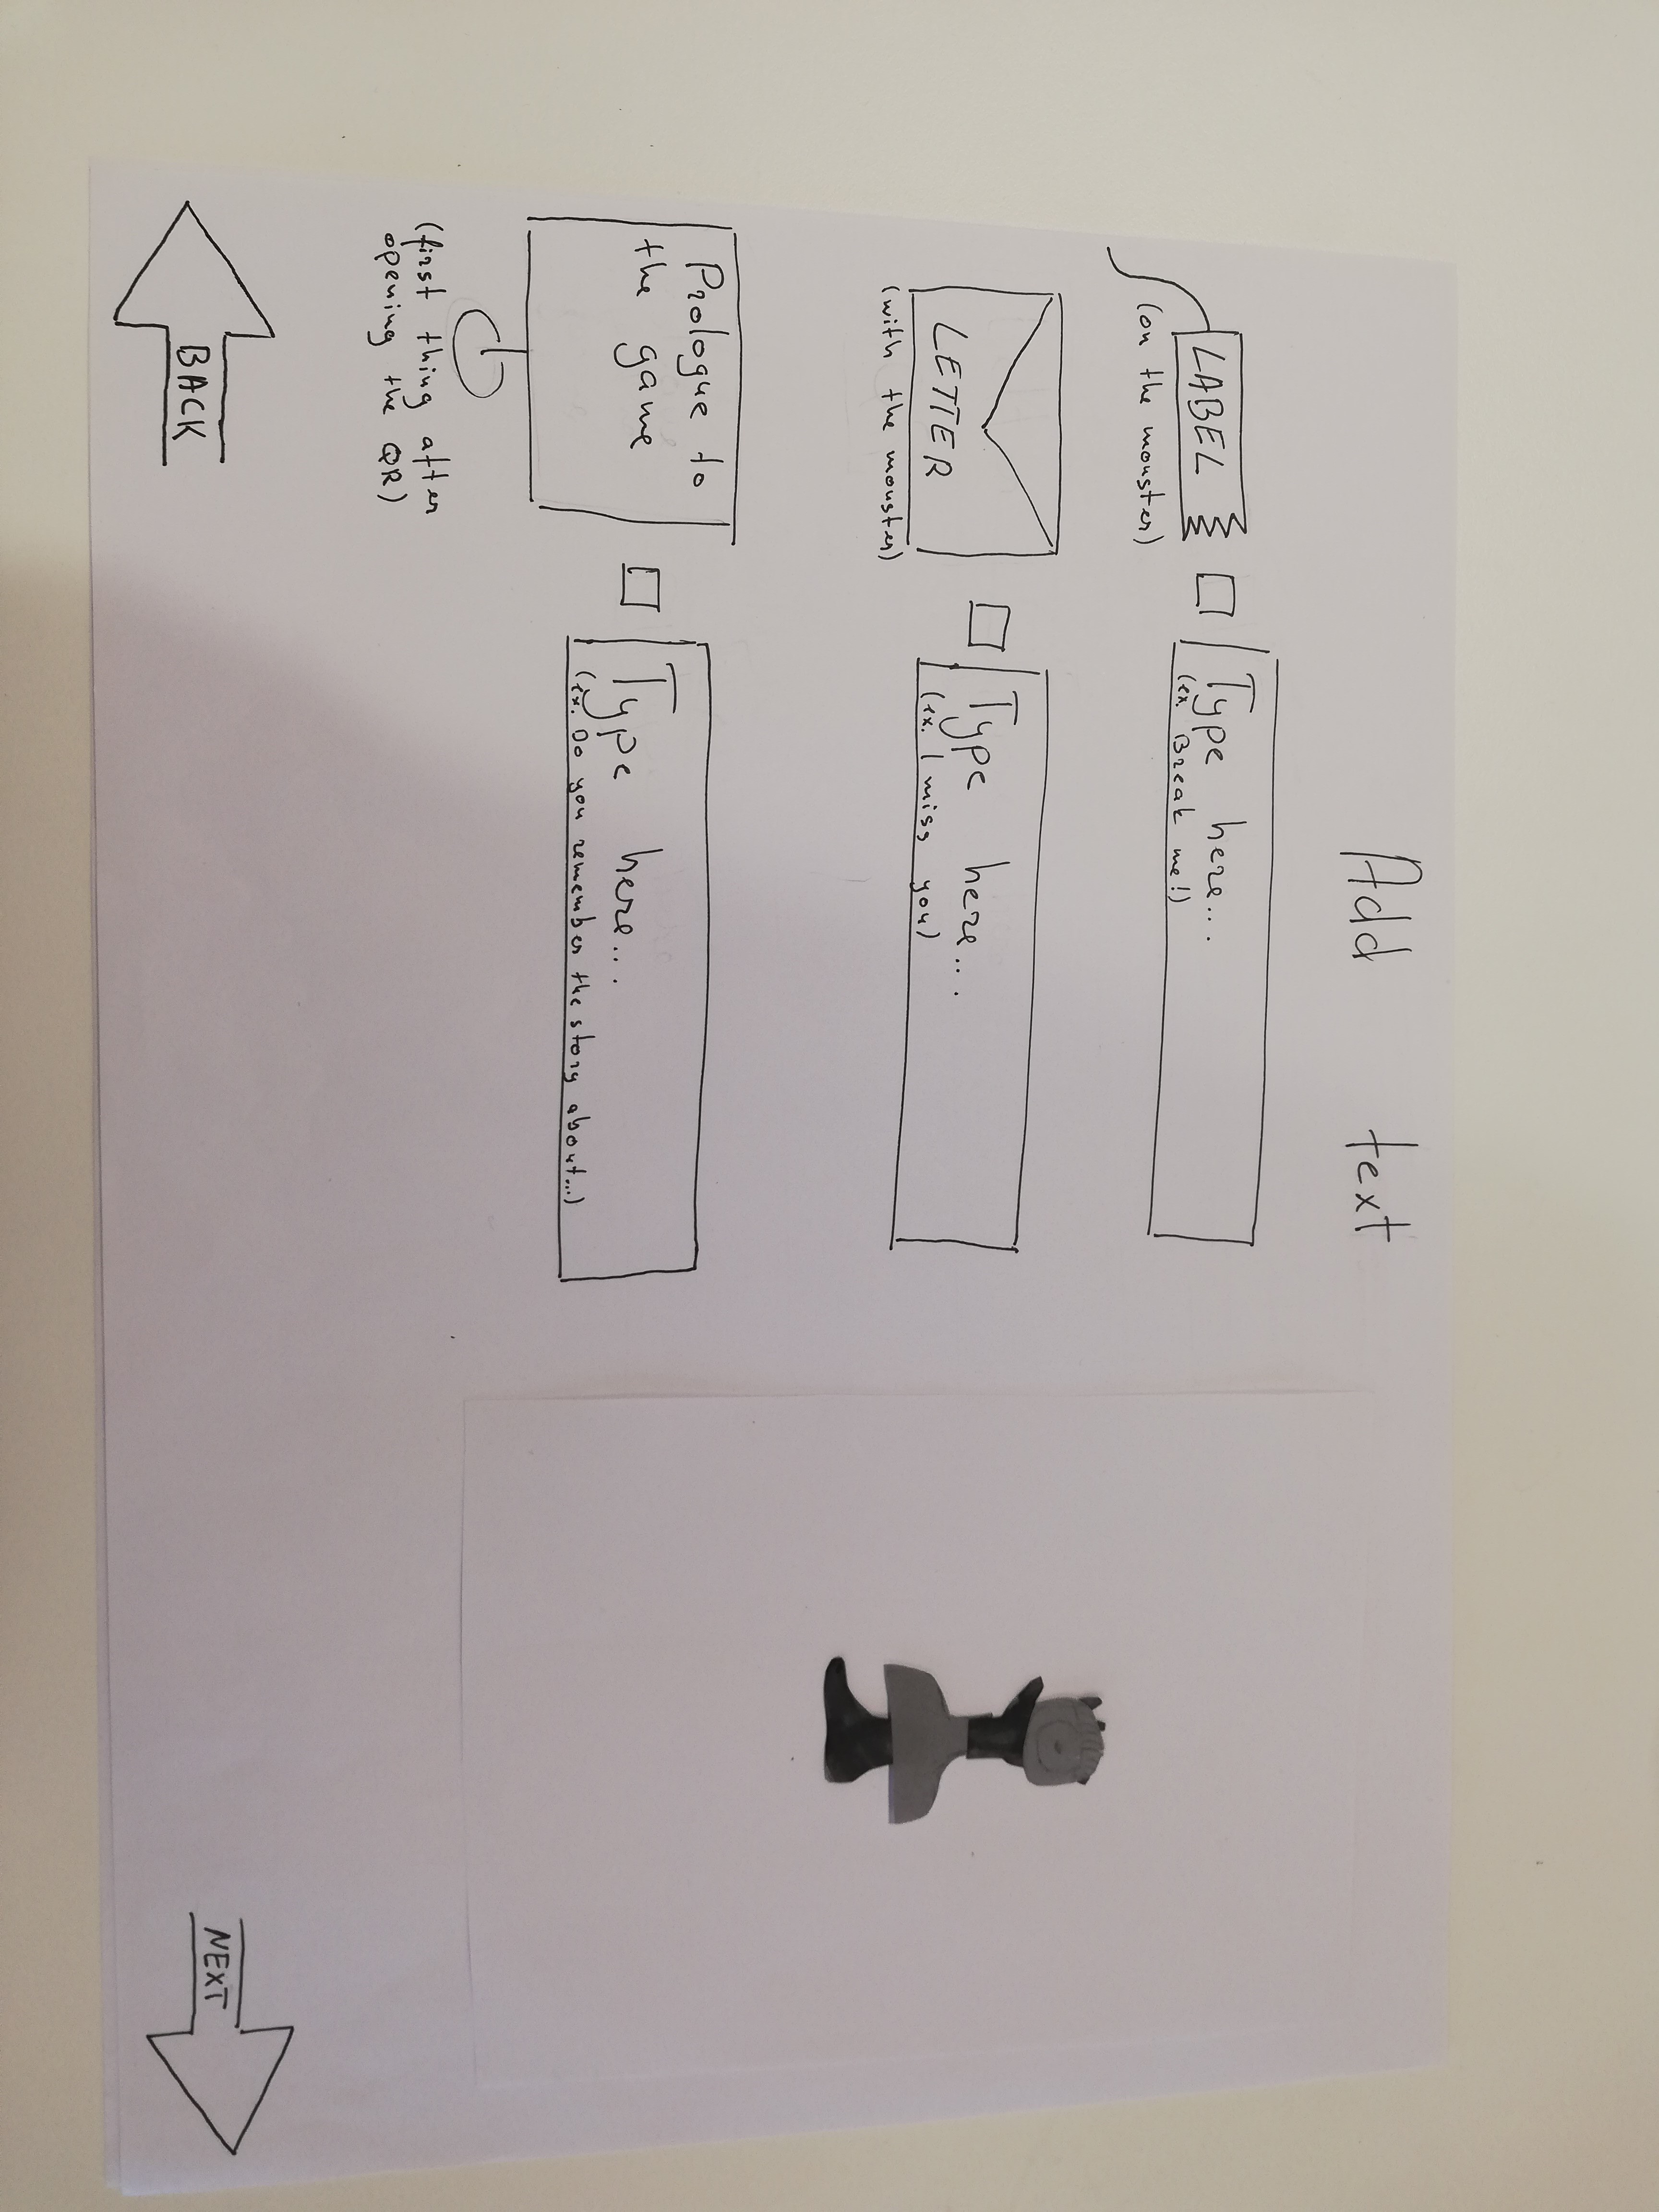 Add text
LABEL
(on the monster)
Type here...
(ex. Break me!)
LETTER
(with the monster)
Type here...
(ex. I miss you)
Prologue to
the game
(first thing after
opening the QR)
Type here...
(ex. Do you remember the story about...)
BACK
NEXT